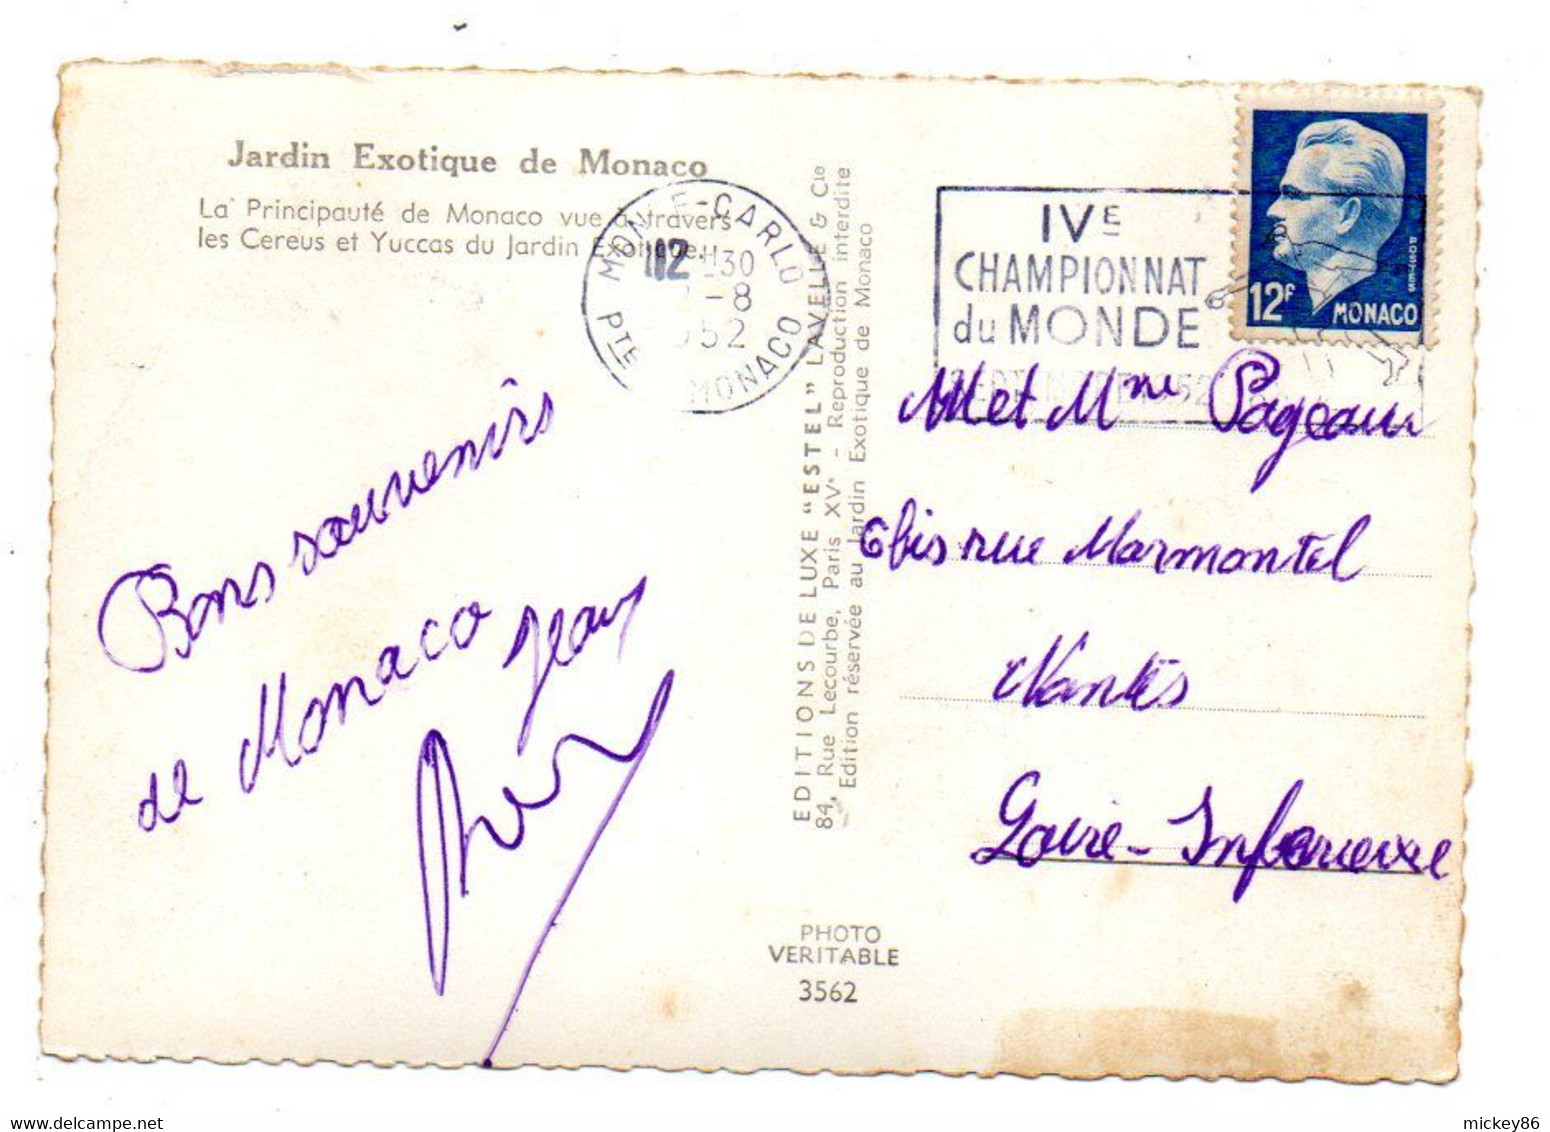 Jardin Exotique de Monaco
La Principauté de Monaco vue à travers
les Cereus et Yuccas du Jardin Exotique.
MONTE-CARLO
12 H30
-8
952
Pte MONACO
IVE
CHAMPIONNAT
du MONDE
12F MONACO
POSTES
Bons souvenirs
de Monaco
Jean
EDITIONS DE LUXE "ESTEL" LAVELLE & Cie
84, Rue Lecourbe, Paris XVe - Reproduction interdite
Edition réservée au Jardin Exotique de Monaco
M et Mme Pageau
6 bis rue Marmontel
Nantes
Loire-Inferieure
PHOTO
VERITABLE
3562
mickey86